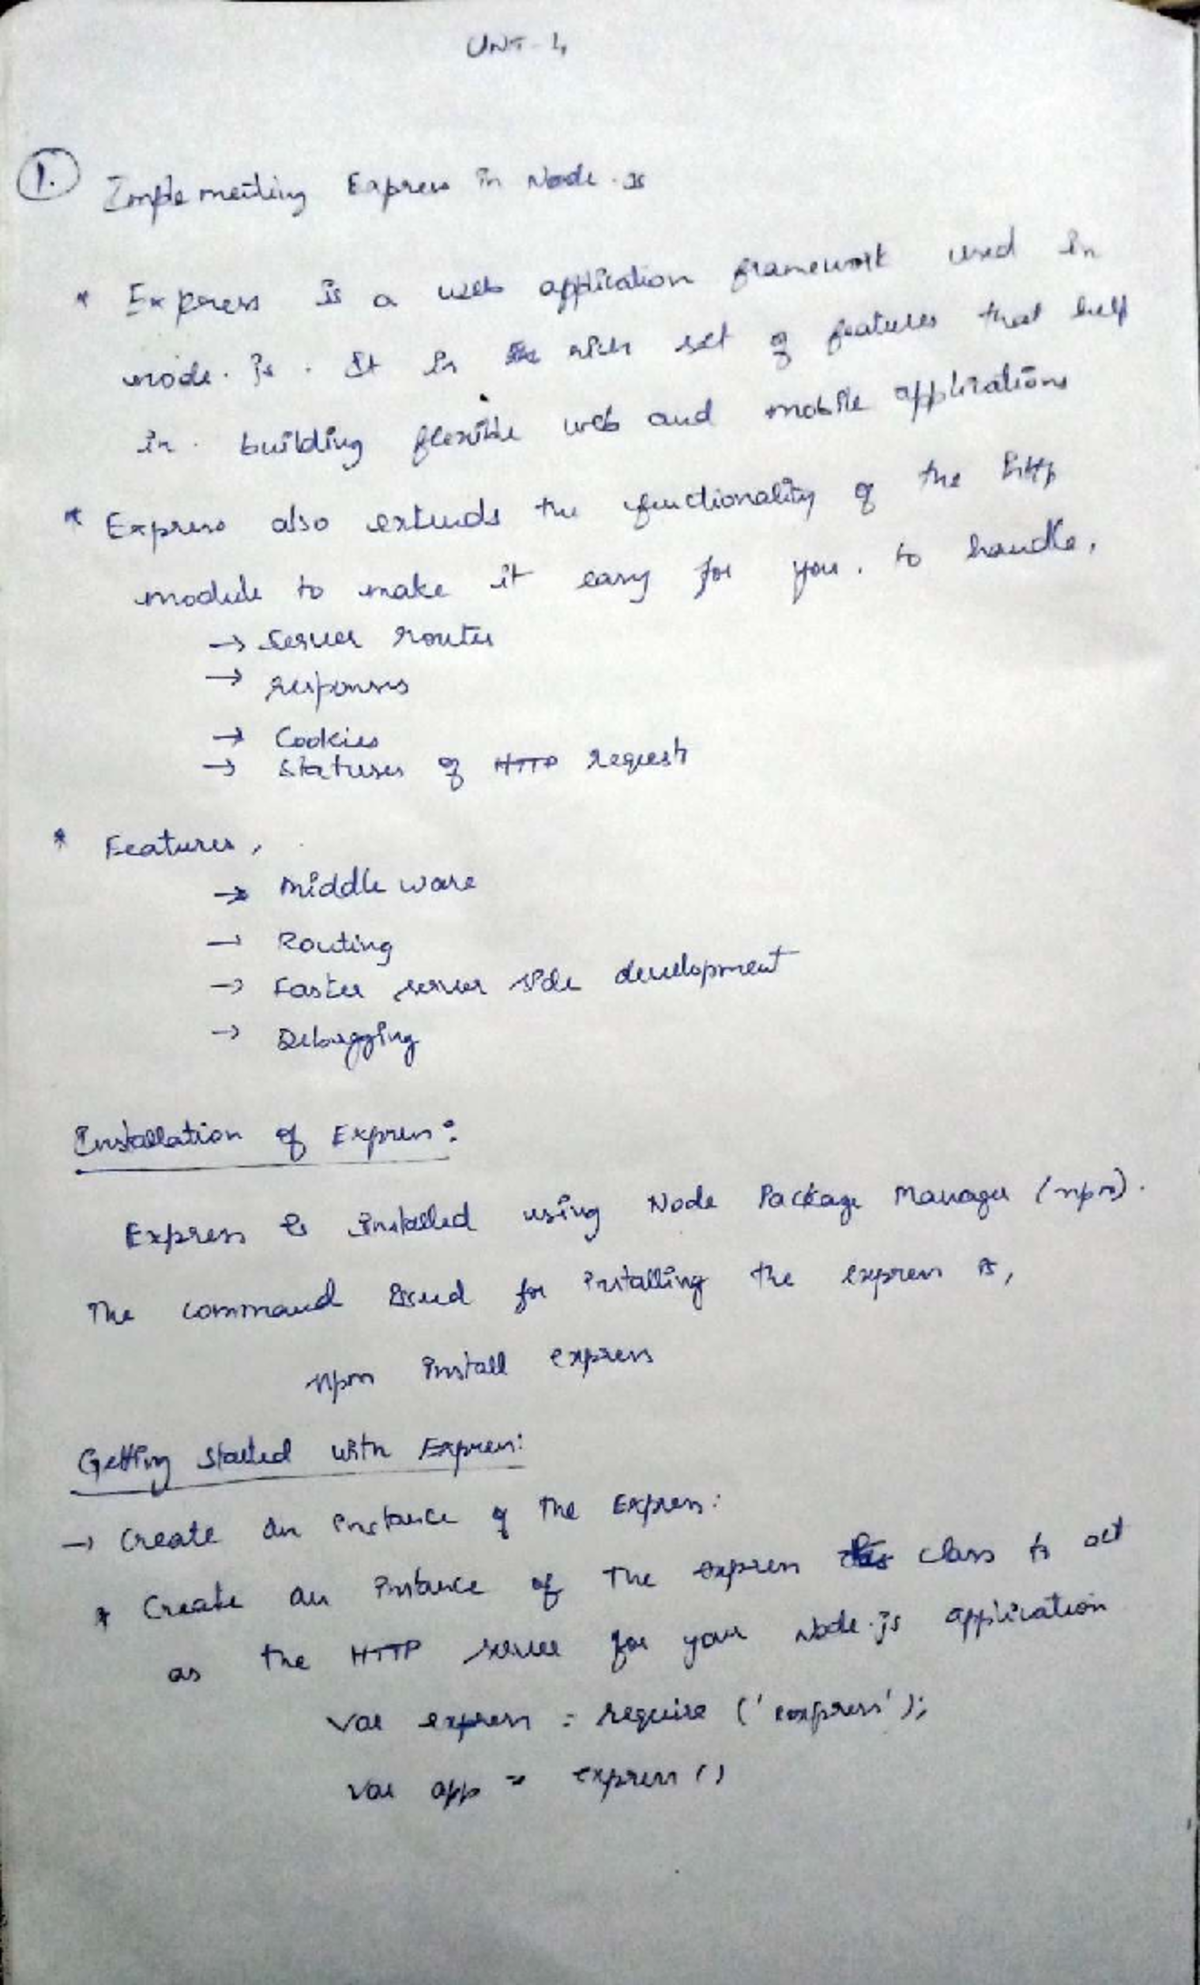 UNT-4
1. Implementing Express in Node.js
* Express is a web application framework used in
node.js. It is rich set of features that help
in building flexible web and mobile applications
* Express also extends the functionality of the http
module to make it easy for you. to handle,
→ Server routes
→ responses
→ Cookies
→ Statuses of HTTP request
* Features,
→ Middle ware
→ Routing
→ Faster server side development
→ Debugging
Installation of Express:
Express is installed using Node Package Manager (npm).
The command issued for installing the express is,
npm install express
Getting started with Express:
→ Create an instance of the Express:
* Create an instance of the express class to act
as the HTTP server for your Node.js application
var express = require ('express');
var app = express ()